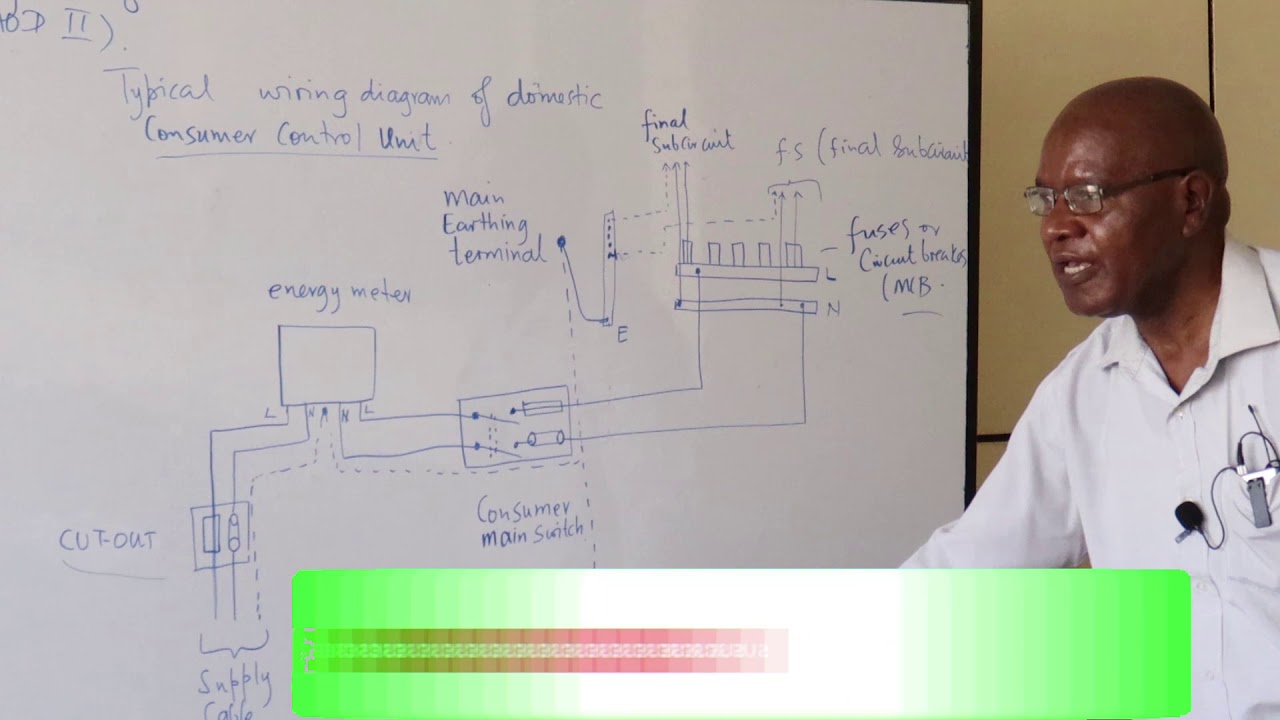 II).
Typical wiring diagram of domestic
Consumer Control Unit
final
subcircuit
f.s (final subcircuit
main
Earthing
terminal
fuses or
Circuit breakes
(MCB.
L
N
E
energy meter
L N N L
Consumer
main switch
CUT-OUT
Supply
Cable